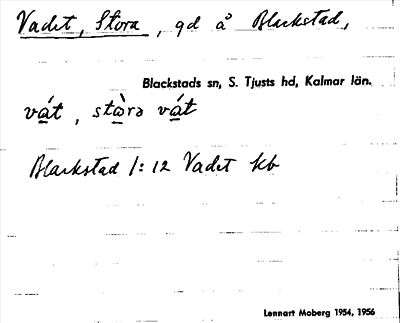 Vadet, Stora, gd å Blackstad,
Blackstads sn, S. Tjusts hd, Kalmar län.
vát, stὰrə vát
Blackstad 1:12 Vadet kb
Lennart Moberg 1954, 1956